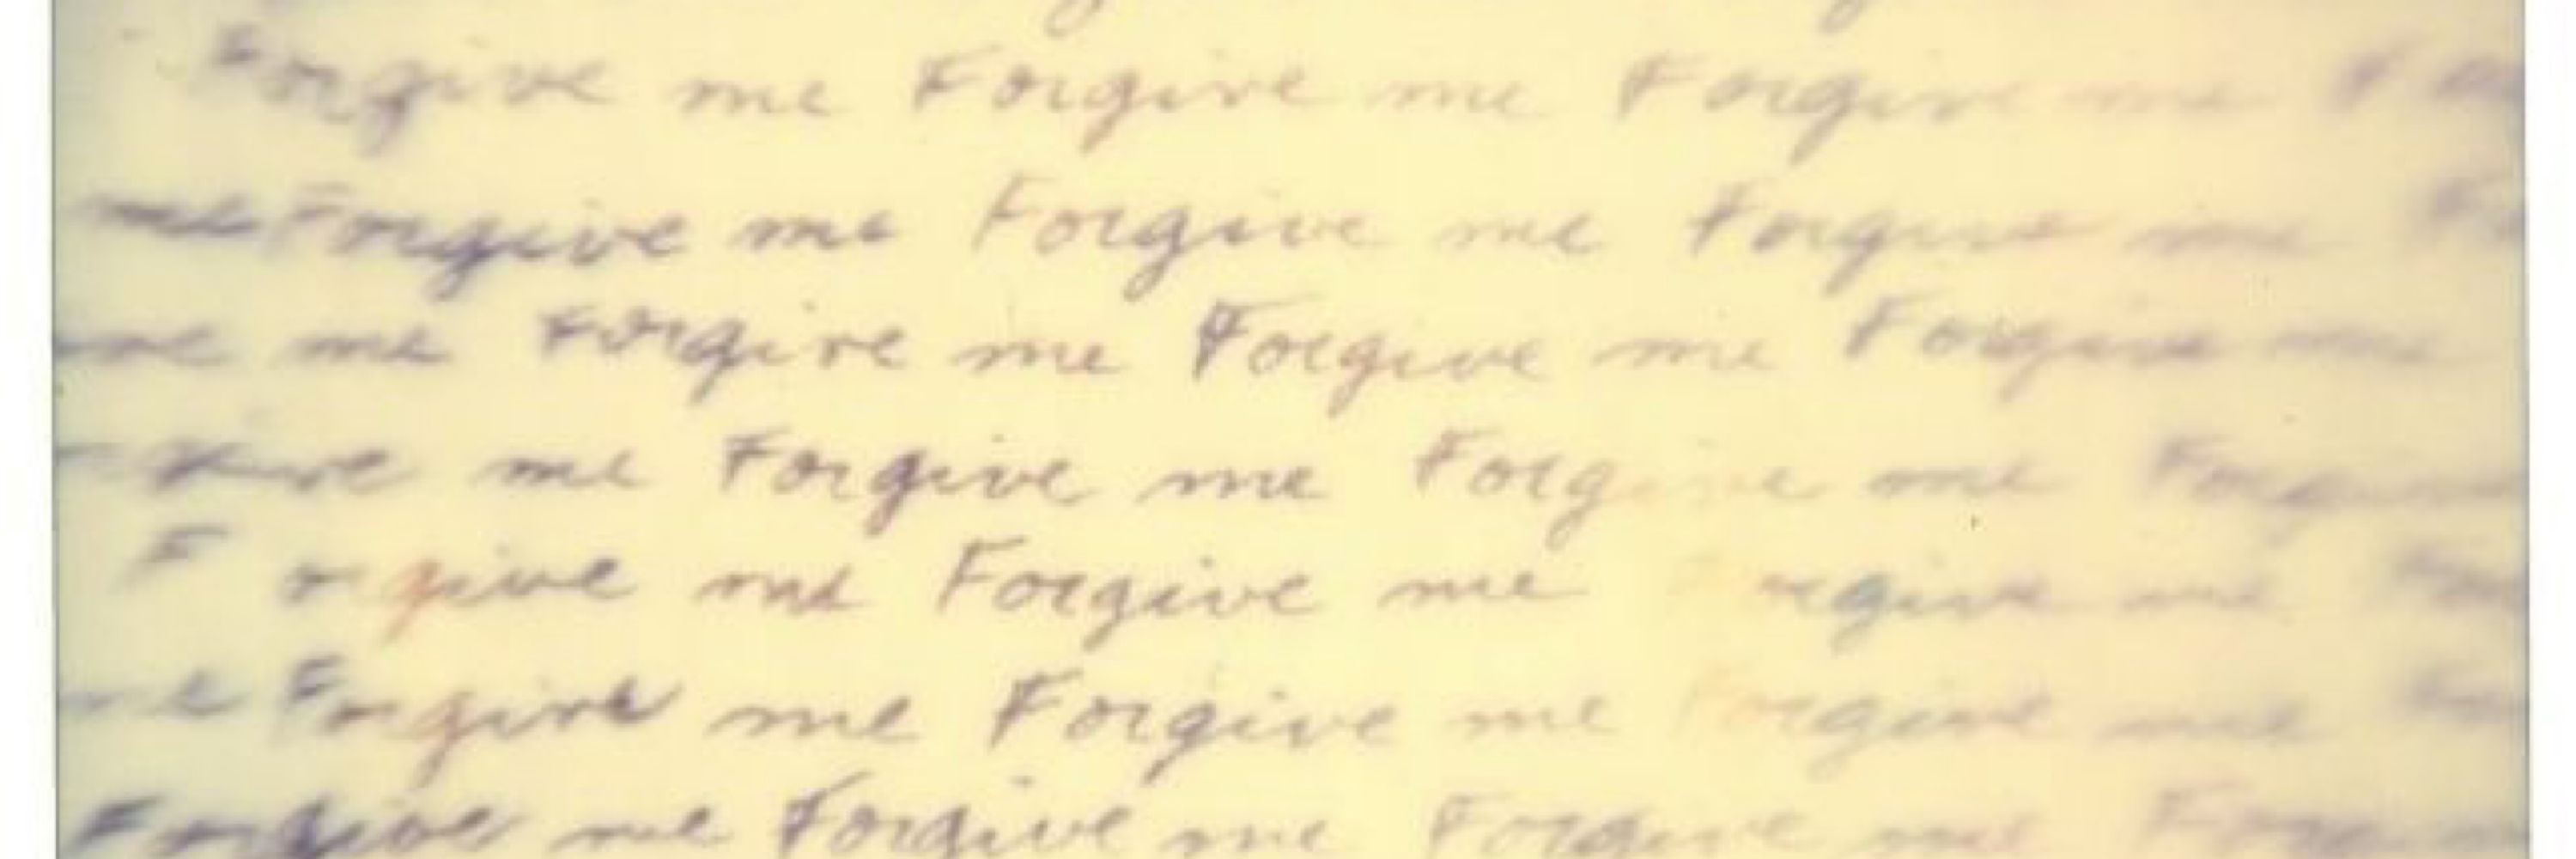 Forgive me Forgive me Forgive me
me Forgive me Forgive me Forgive me
me Forgive me Forgive me Forgive me
me Forgive me Forgive me Forgive
Forgive me Forgive me orgive me
Forgive me Forgive me Forgive me
Forgive me Forgive me Forgive me